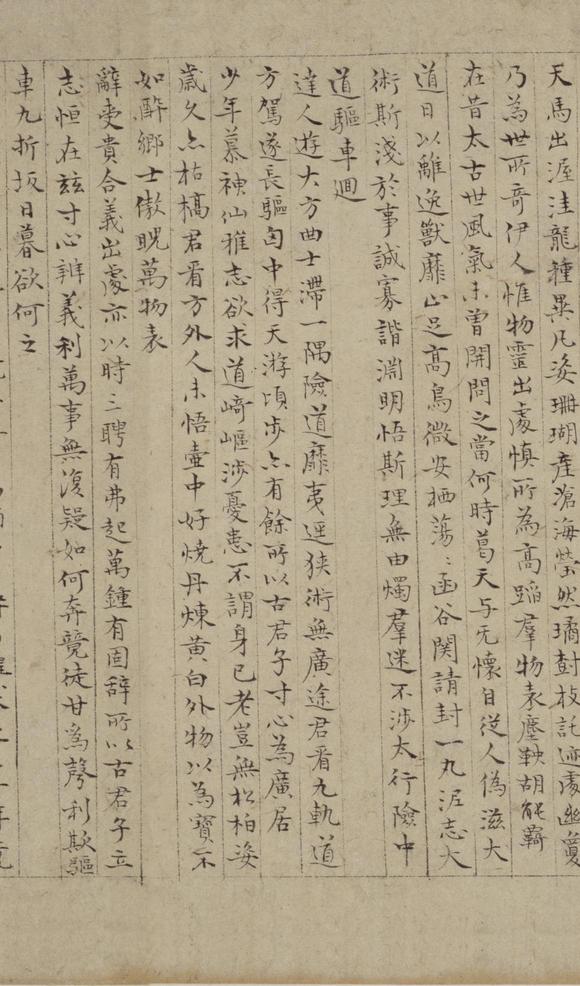 天馬出渥洼龍種異凡姿珊瑚產滄海瑩然璚樹枝託迹處幽夐
乃為世所奇伊人惟物靈出處慎所為高蹈羣物表塵鞅胡能羈
在昔太古世風氣未曾開問之當何時葛天与无懷自從人偽滋大
道日以離逸獸靡山足高鳥微安栖蕩〻函谷関請封一丸泥志大
術斯淺於事誠寡諧淵明悟斯理無由燭羣迷不涉太行險中
道驅車迴
達人遊大方曲士滯一隅險道靡夷逕狹術無廣途君看九軌道
方駕遂長驅匈中得天游頃步亦有餘所以古君子寸心為廣居
少年慕神仙雅志欲求道崎嶇涉憂患不謂身已老豈無松柏姿
歲久亦枯槁君看方外人未悟壷中好燒丹煉黃白外物以為寶不
如醉鄉士傲睨萬物表
辭受貴合義出處亦以時三聘有弗起萬鍾有固辞所以古君子立
志恒在玆寸心辨義利萬事無復疑如何奔競徒甘為聲利欺驅
車九折坂日暮欲何之